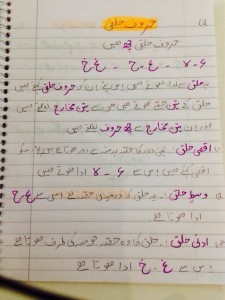 حروف حلقی
حروف حلقی چھ ہیں
ء ہ - ع - ح - غ خ
یہ حلق سے ادا ہوتے ہیں اس لئے ان کو حروف حلقی کہتے ہیں
حلق کے تین حصے ہوتے ہیں جن سے تین مخارج بنتے ہیں
اور ان تین مخارج سے چھ حروف نکلتے ہیں
① اقصی حلق : حلق کا حصہ سے دور ہوتا ہے اس کو
اقصی کہتے ہیں اس سے ء - ہ ادا ہوتے ہیں
② وسط حلق : یہ حلق کا درمیانی حصہ ہے اس سے ع ح
ادا ہوتا ہے
ادنی حلق : حلق کا وہ حصہ جو منہ کی طرف ہوتا ہے
اس سے غ - خ ادا ہوتا ہے